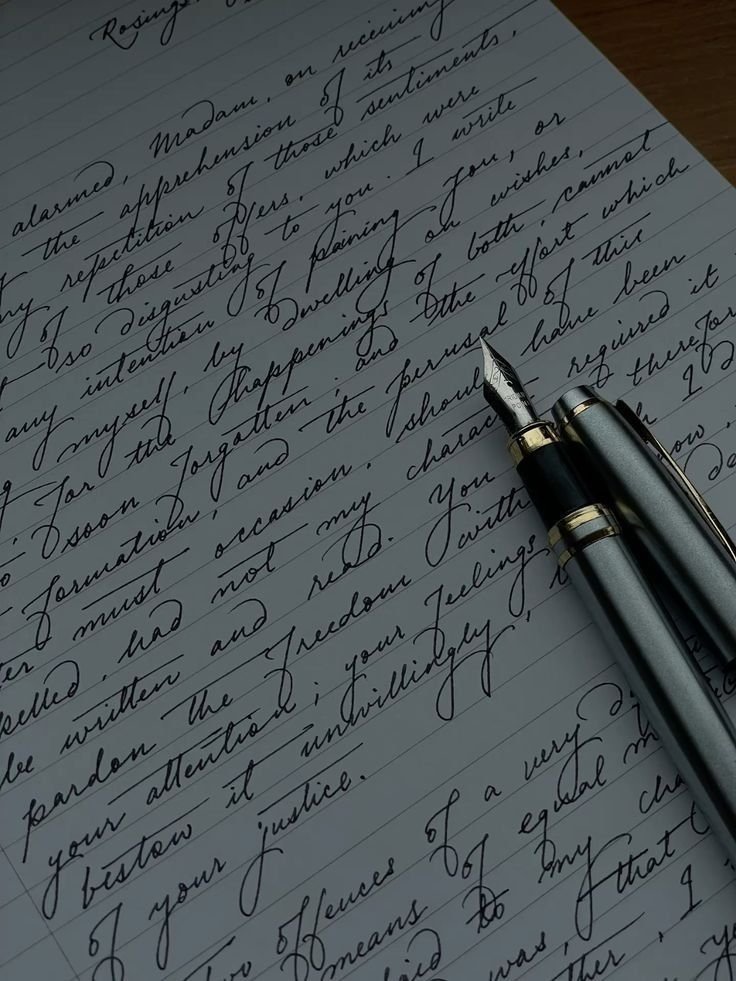 Rosings,
alarmed, Madam, on receiving
the apprehension of its
ny repetition of those sentiments,
of those offers, which were
t so disgusting to you. I write
any intention of paining you, or
g myself, by dwelling on wishes,
for the happenings of both, cannot
soon forgotten; and the effort which
formation, and the perusal of this
er must occasion, should have been
elled, had not my charac required it
be written and read. You therefor
pardon the freedom with h I d
your attention; your feelings ow,
bestow it unwillingly,
of your justice.
wo offences of a very d
means of equal m
aid to my cha
was, that
ther, I